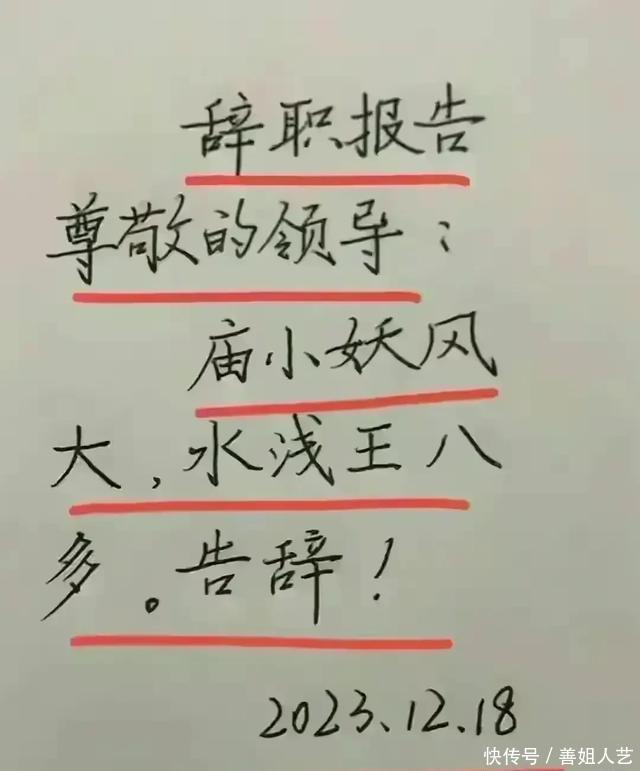 辞职报告
尊敬的领导：
庙小妖风
大，水浅王八
多。告辞！
2023.12.18
快传号／善姐人艺